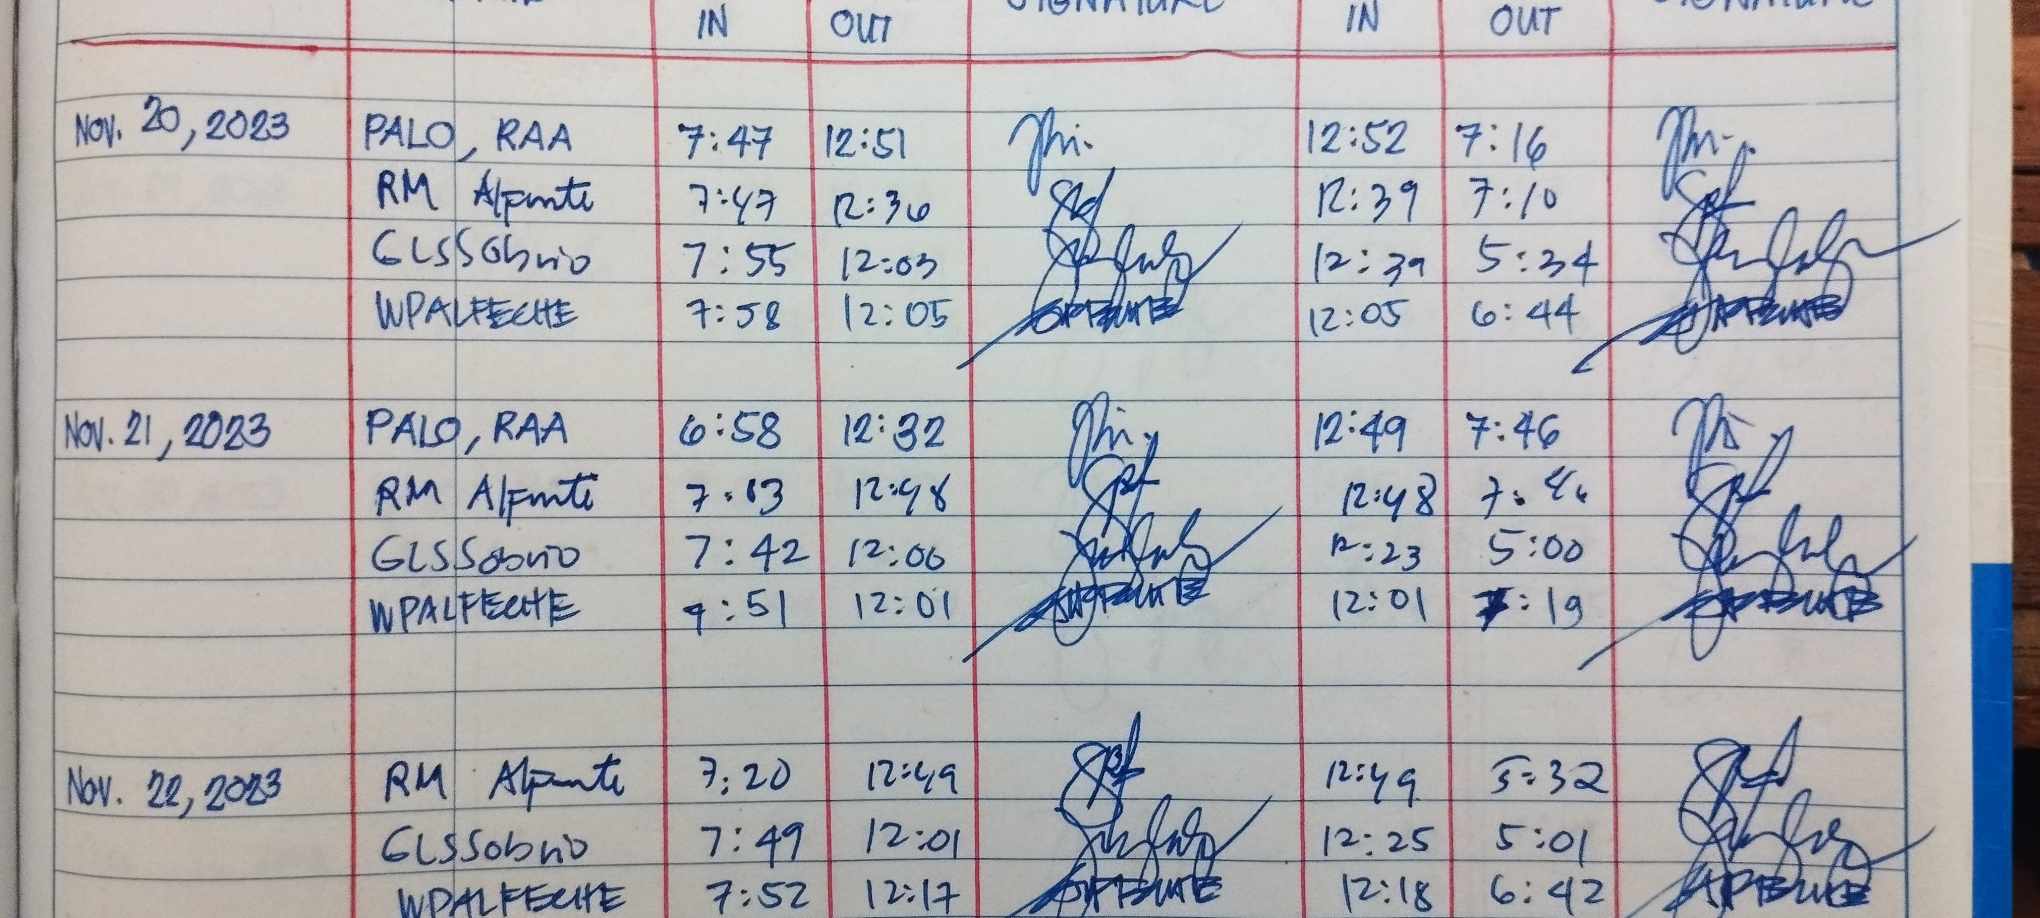 IN OUT SIGNATURE IN OUT SIGNATURE
Nov. 20, 2023 PALO, RAA 7:47 12:51 12:52 7:16
RM Alpunte 7:47 12:36 12:39 7:10
GLSSobrio 7:55 12:03 12:39 5:34
WPALFECHE 7:58 12:05 12:05 6:44
Nov. 21, 2023 PALO, RAA 6:58 12:32 12:49 7:46
RM Alpunte 7:13 12:48 12:48
GLSSobrio 7:42 12:00 12:23 5:00
WPALFECHE 7:51 12:01 12:01 :19
Nov. 22, 2023 RM Alpunte 7:20 12:49 12:49 5:32
GLSSobrio 7:49 12:01 12:25 5:01
WPALFECHE 7:52 12:17 12:18 6:42